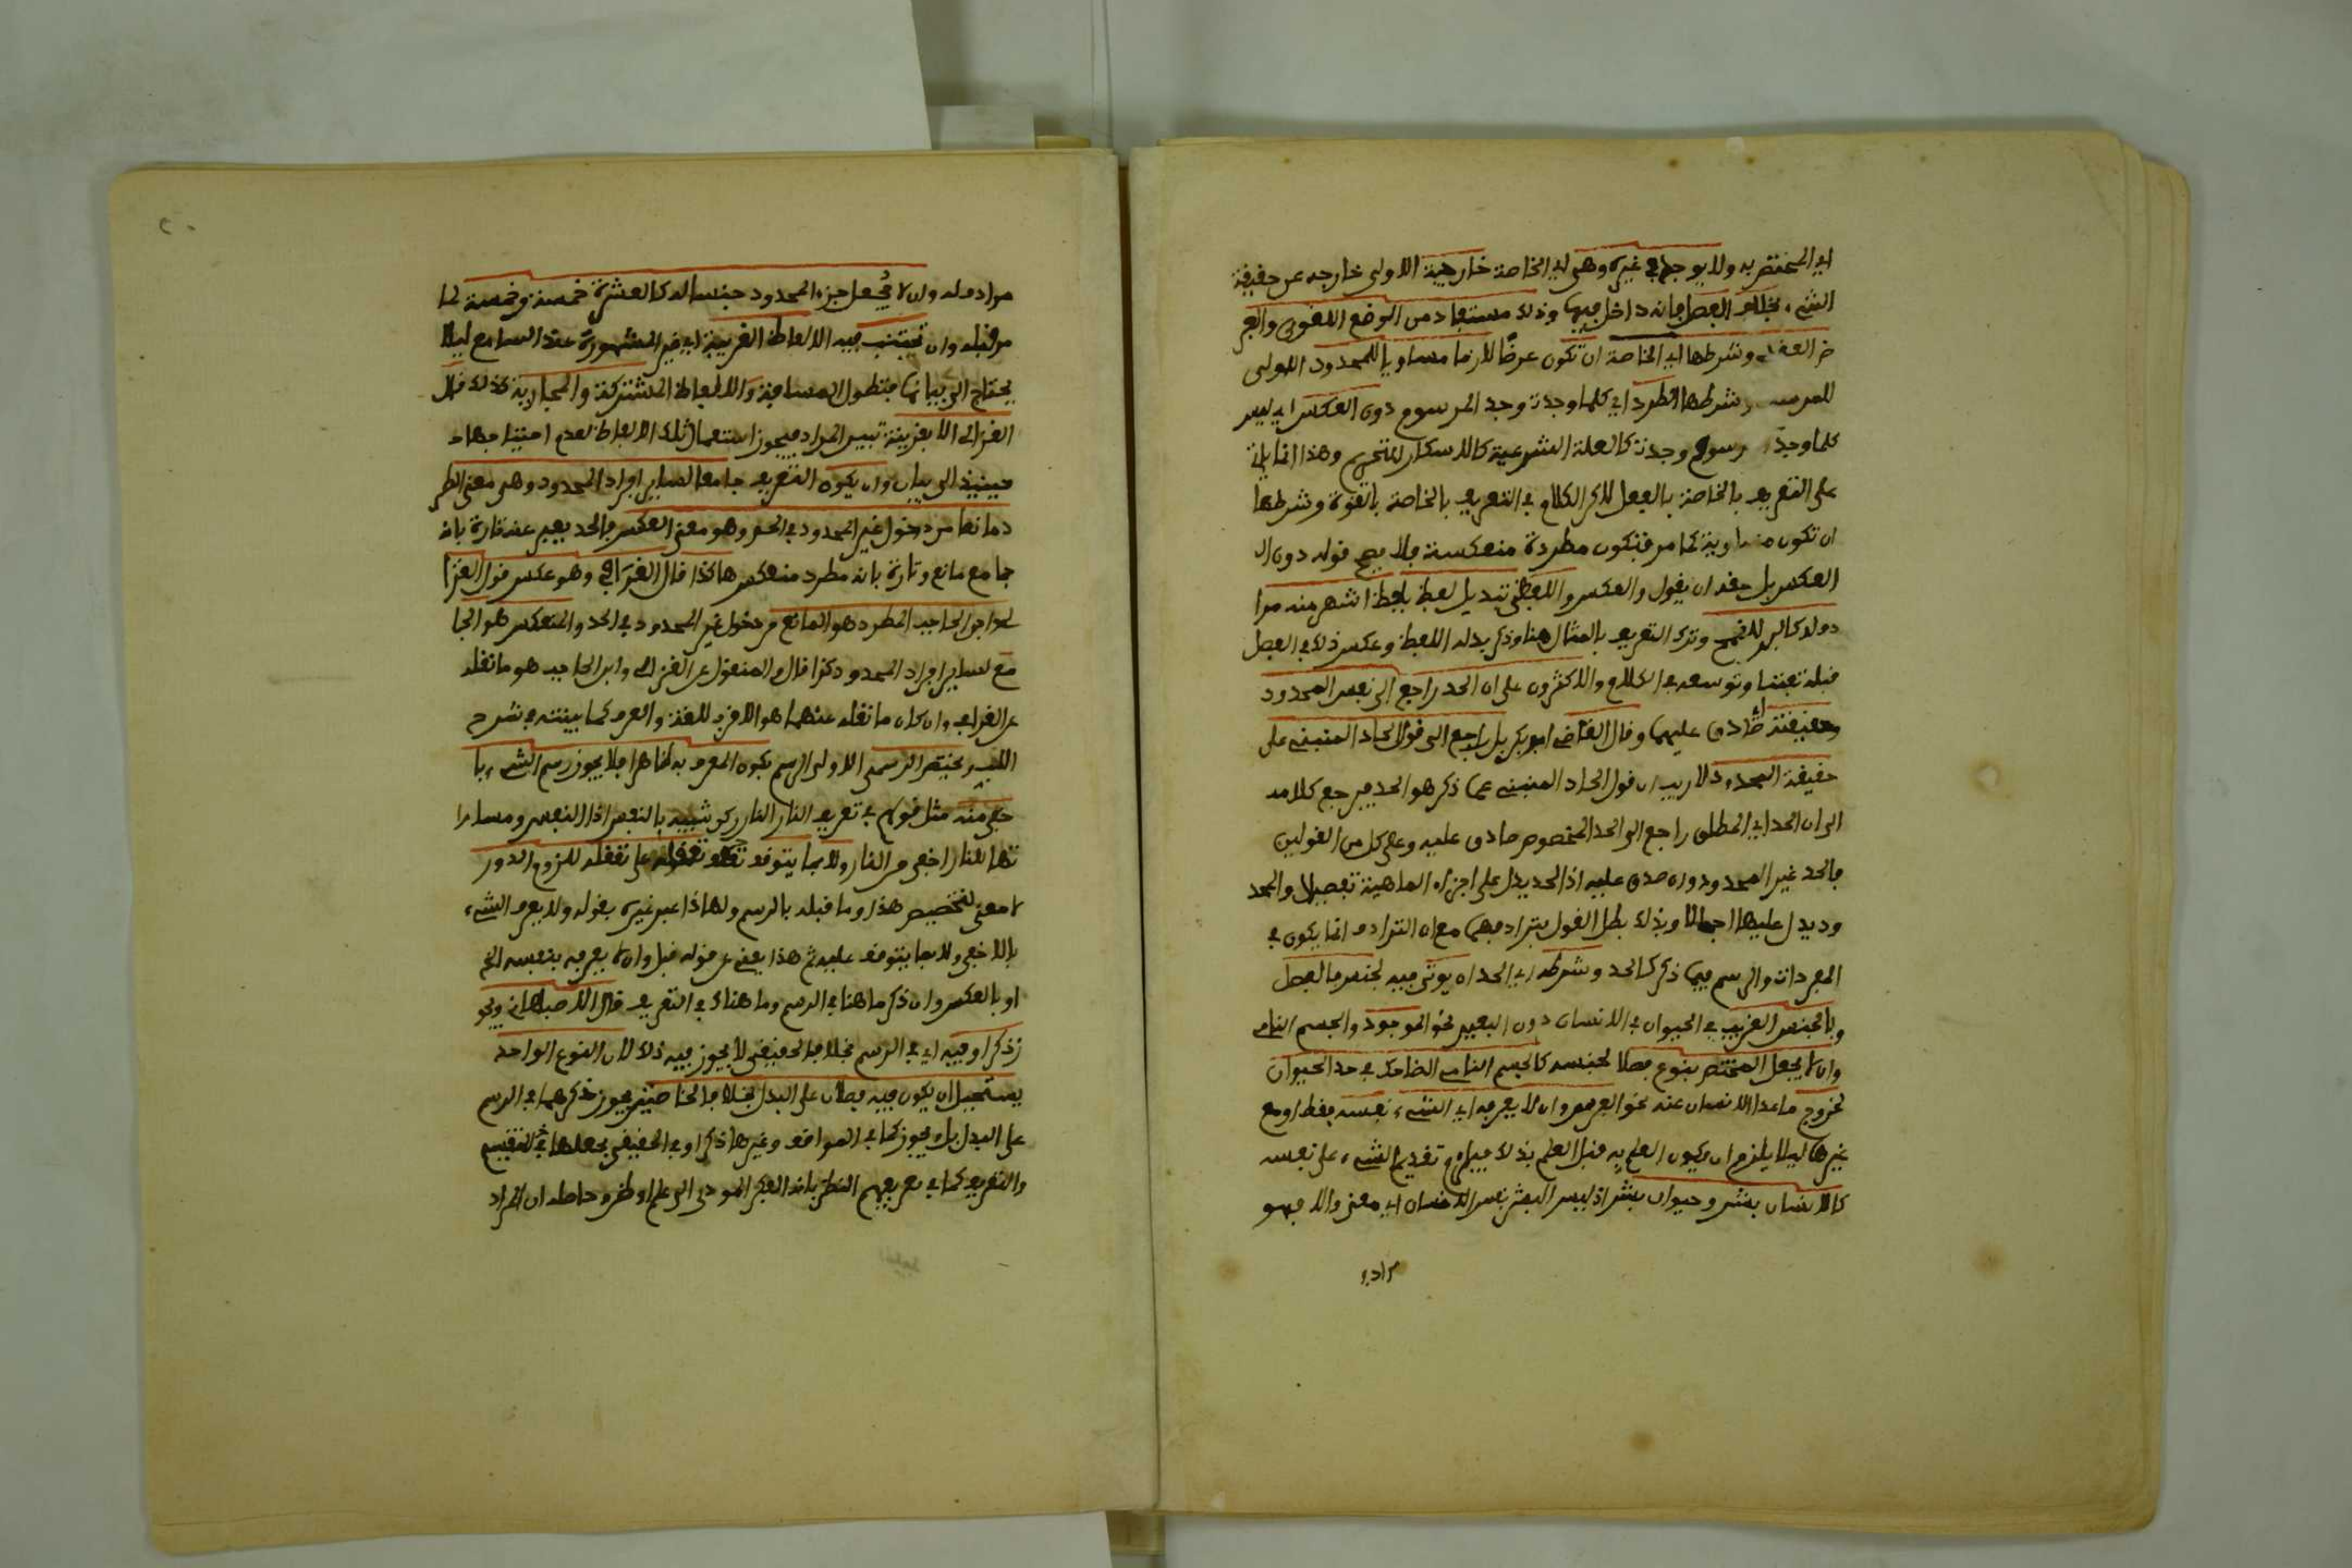 اي المختص به ولا يوجد في غيره وهي اي الخاصة خارجية الاولى خارجه عن حقيقة
الشيء بخلاف الفصل فانه داخل فيها وذلك مستفاد من الوضع اللغوي والعر
ض العقلي وشرطها اي الخاصة ان تكون عرضًا لازما مساويا للمحدود الاولى
للمرسوم شرطها الطرد اي كلما وجدت وجد المرسوم دون العكس اي ليس
كلما وجد المرسوم وجدت كالعلة الشرعية كالاسكار للتحريم وهذا انما ياتي
على التعريف بالخاصة بالفعل لاكن الكلام في التعريف بالخاصة بالقوة وشرطها
ان تكون مساوية كما مر فتكون مطردة منعكسة فلا يصح قوله دون ال
العكس بل حقه ان يقول والعكس واللفظي تبديل لفظ بلفظ اشهر منه مرا
دف له كالبر للقمح وترك التعريف بالمثال هنا وذكر بدله اللفظ وعكس ذلك في الفصل
قبله تفننا وتوسعه في الكلام والاكثرون على ان الحد راجع الى نفس المحدود
وحقيقته صادق عليها وقال القاضي ابو بكر بل راجع الى قول الحاد المنبئ على
حقيقة المحدود ولا ريب ان قول الحاد المنبئ عما ذكر هو الحد فيرجع كلامه
الى ان الحد اي المطلق راجع الى الحد المخصوص صادق عليه وعلى كل من القولين
فالحد غير المحدود وان صدق عليه اذ الحد يدل على اجزاء الماهية تفصيلا والمحد
ود يدل عليها اجمالا وبذلك بطل القول بترادفهما مع ان الترادف انما يكون في
المفردات والرسم فيما ذكر كالحد وشرطه اي الحد ان يوتى فيه بجنس فالفصل
وبالجنس القريب في الحيوان في الانسان دون البعيد نحو الموجود والجسم النامي
وان لا يجعل المختص بنوع فصلا لجنسه كالجسم النامي الضاحك في حد الحيوان
لخروج ماعدا الانسان عنه نحو الفرس وان لا يعرف اي الشيء بنفسه فقط او مع
غيرها ليلا يلزم ان يكون العلم به قبل العلم بذلك فيلزم تقديم الشيء على نفسه
كالانسان بشر وحيوان بشر اذ ليس البشر نفس الانسان اي معنى والا فهو
مرادف
٢٠
مرادف له وان لا يجعل جزء المحدود جنسا له كالعشرة خمسة وخمسة لما
مر قبله وان يجتنب فيه الالفاظ الغريبة اي غير المشهورة عند السامع ليلا
يحتاج الى بيانها فتطول المسافة والالفاظ المشتركة والمجازية كذلك قال
الغزالي الا بقرينة تبين المراد فيجوز استعمال تلك الالفاظ لعدم احتياجها
حينيذ الى بيان وان يكون التعريف جامعا لساير افراد المحدود وهي معنى الطر
د مانعا من دخول غير المحدود في الحد وهو معنى العكس فالحد يعبر عنه تارة بانه
جامع مانع وتارة بانه مطرد منعكس هاكذا قال القرافي وهو عكس قول الغزا
لي وابن الحاجب المطرد هو المانع من دخول غير المحدود في الحد والمنعكس هو الجا
مع لساير افراد المحدود كذا قال والمنقول عن الغزالي وابن الحاجب هو ما نقله
عن القرافي وان كان ما نقله عنهما هو الاقرب للغة والعرف كما بينته في شرح
اللب ويختص الرسمي الاولى الرسم بكون المعرف به ظاهرا فلا يجوز رسم الشيء با
خفى منه مثل قولهم في تعريف النار النار ركن شبيه بالنفس اذ النفس ومشابه
تها للنار اخفى من النار ولا بما يتوقف تعقله على تعقله للزوم الدور
لا معنى لتخصيص هذا وما قبله بالرسم ولهاذا عبر غيره بقوله ولا يعرف الشيء
بالاخفى ولا بما يتوقف عليه ثم هذا يغني عن قوله قبل وان لا يعرف بنفسه الخ
او بالعكس وان ذكر ما هنا في الرسم وما هناك في التعريف قال الاصبهاني ويجو
ز ذكر او فيه اي في الرسم بخلاف الحقيقي لا يجوز فيه ذلك لان النوع الواحد
يستحيل ان يكون فيه فصلان على البدل بخلاف الخاصتين يجوز ذكرهما في الرسم
على البدل بل يجوز كما في المواقف وغيرها ذكر او في الحقيقي بجعلها في التقسيم
والتعريف كما في تعريفهم النظر بانه الفكر المودي الى علم او ظن وحاصله ان المراد